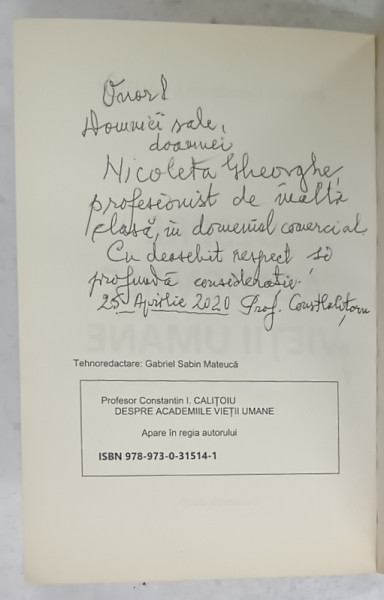 Onor!
Domniei sale,
doamnei
Nicoleta Gheorghe,
profesionist de înaltă
clasă, în domeniul comercial.
Cu deosebit respect și
profundă considerație!
25 Aprilie 2020 Prof.
Tehnoredactare: Gabriel Sabin Mateucă
Profesor Constantin I. CALIȚOIU
DESPRE ACADEMIILE VIEȚII UMANE
Apare în regia autorului
ISBN 978-973-0-31514-1